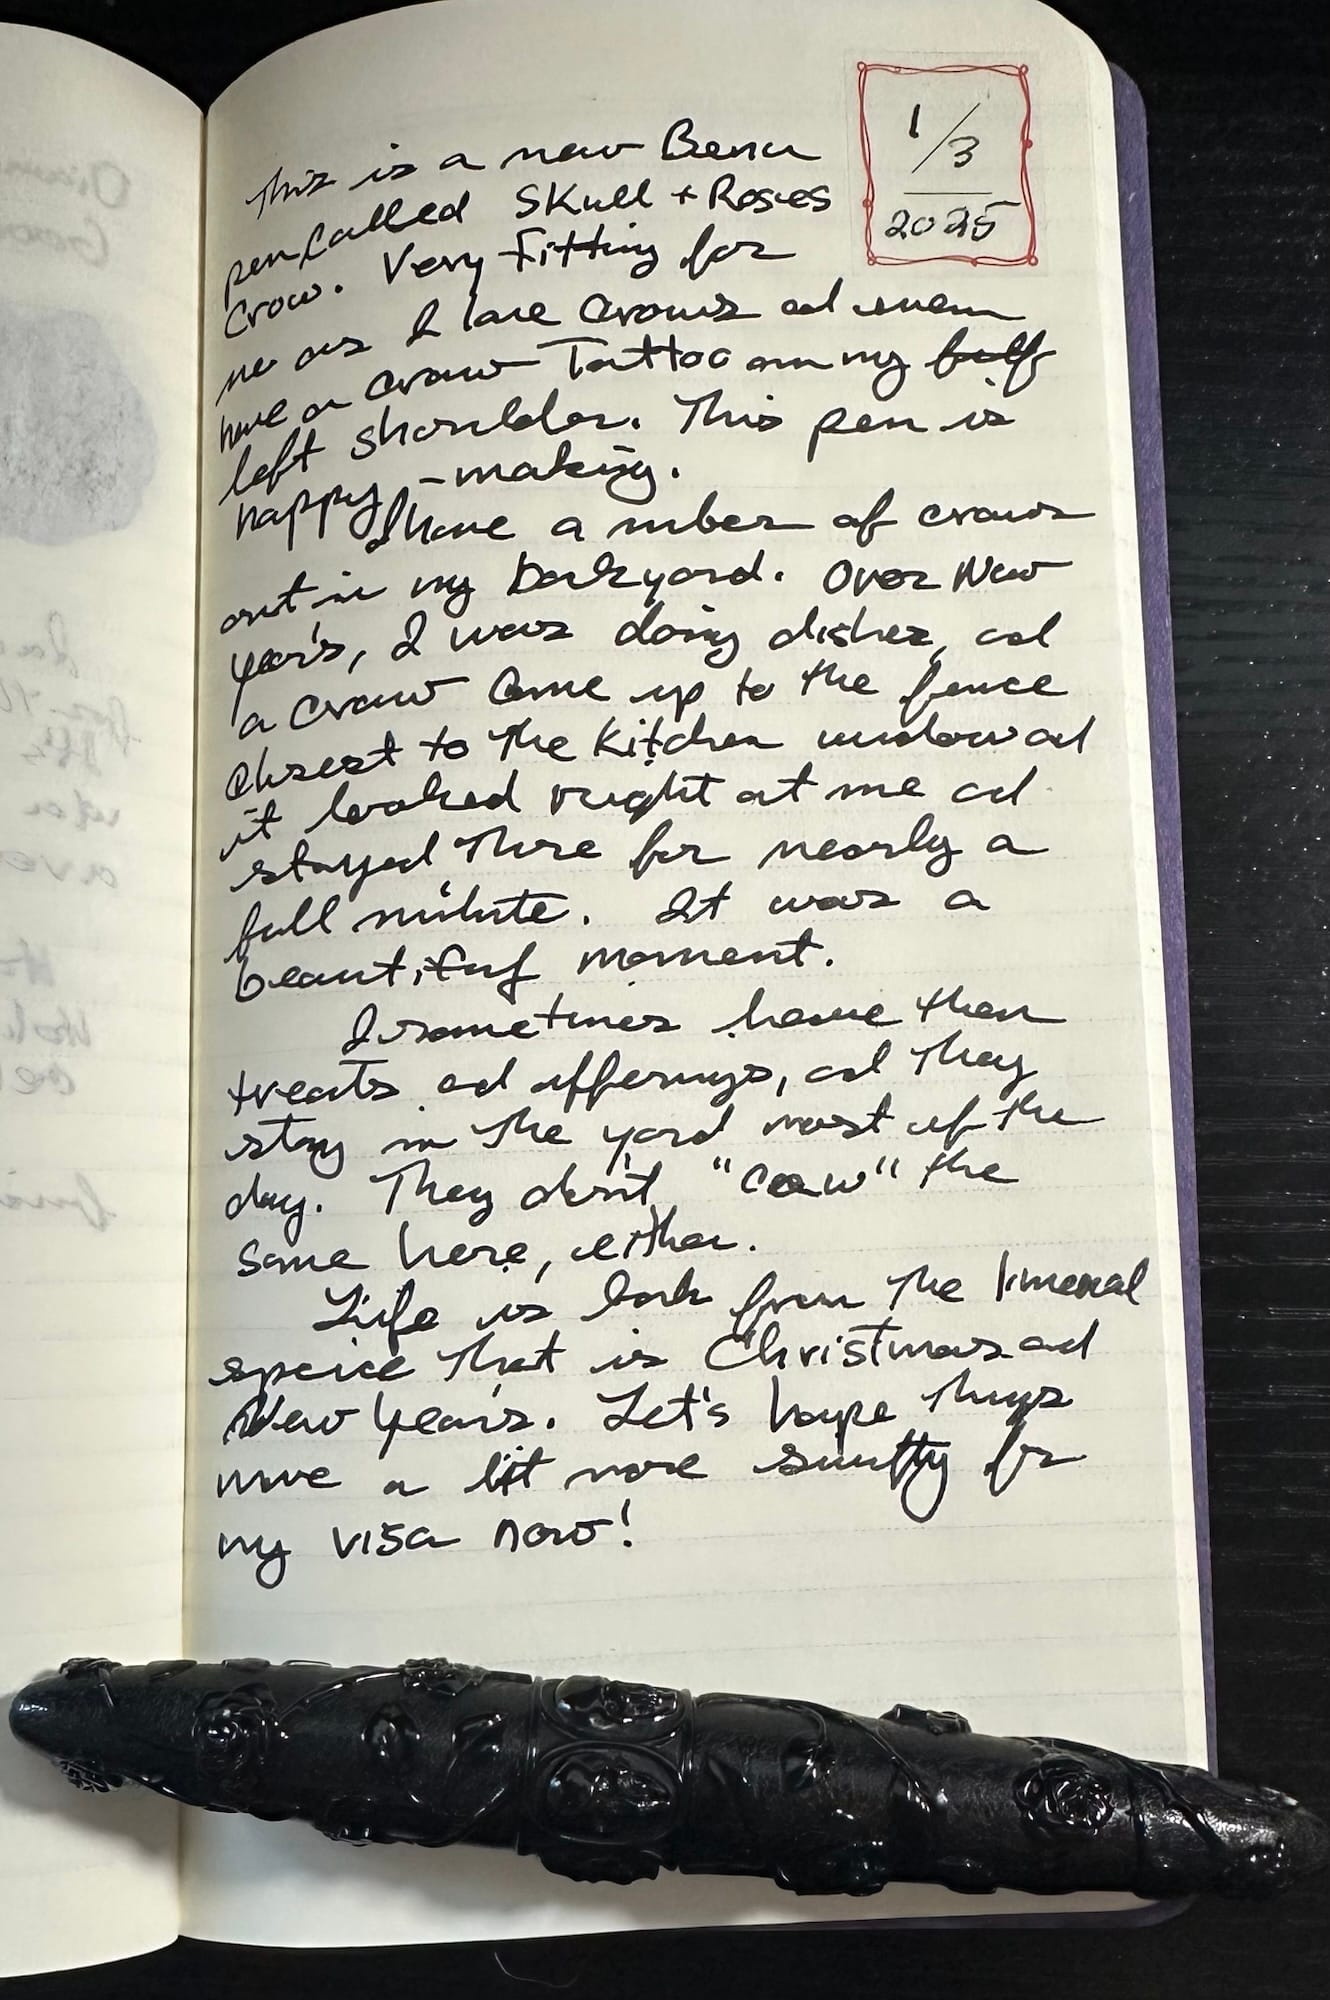 1/3
2025
This is a new Benu
pen called Skull + Roses
Crow. Very fitting for
me as I love crows ad even
have a crow Tattoo on my
left shoulder. This pen is
happy-making.
I have a nmber of crows
out in my backyard. Over New
Year's, I was doing dishes, ad
a crow came up to the fence
closest to the kitchen window ad
it looked right at me ad
stayed there for nearly a
full minute. It was a
beautiful moment.
I sometimes leave them
treats ad offerings, ad they
stay in the yard most of the
day. They don't "caw" the
same here, either.
Life is back from the limenal
space that is Christmas ad
New Year's. Let's hope things
move a bit more swiftly for
my visa now!